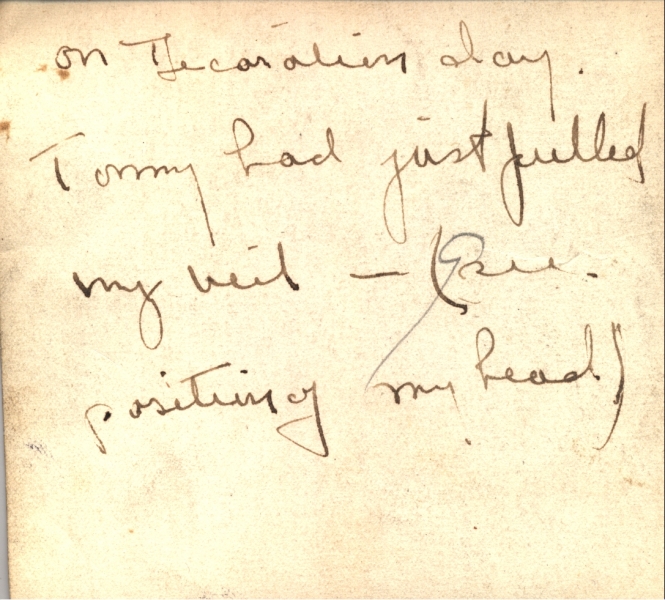 on Decoration day.
Tommy had just pulled
my veil — (see
position of my head)